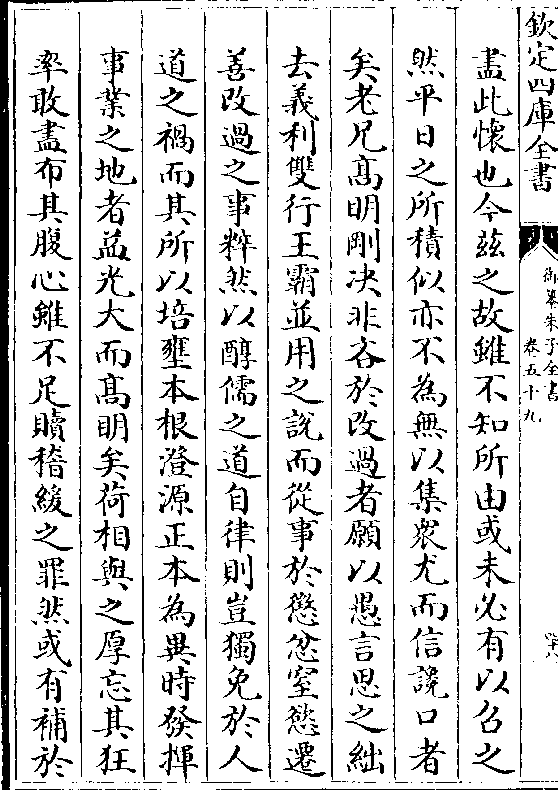 欽定四庫全書
御纂朱子全書
卷五十九
盡此懷也今兹之故雖不知所由或未必有以召之
然平日之所積似亦不為無以集衆尤而信讒口者
矣老兄髙明剛决非吝於改過者願以愚言思之絀
去義利雙行王霸並用之說而從事於懲忿窒慾遷
善改過之事粹然以醇儒之道自律則豈獨免於人
道之禍而其所以培壅本根澄源正本為異時發揮
事業之地者益光大而髙明矣荷相與之厚忘其狂
率敢盡布其腹心雖不足贖稽緩之罪然或有補於